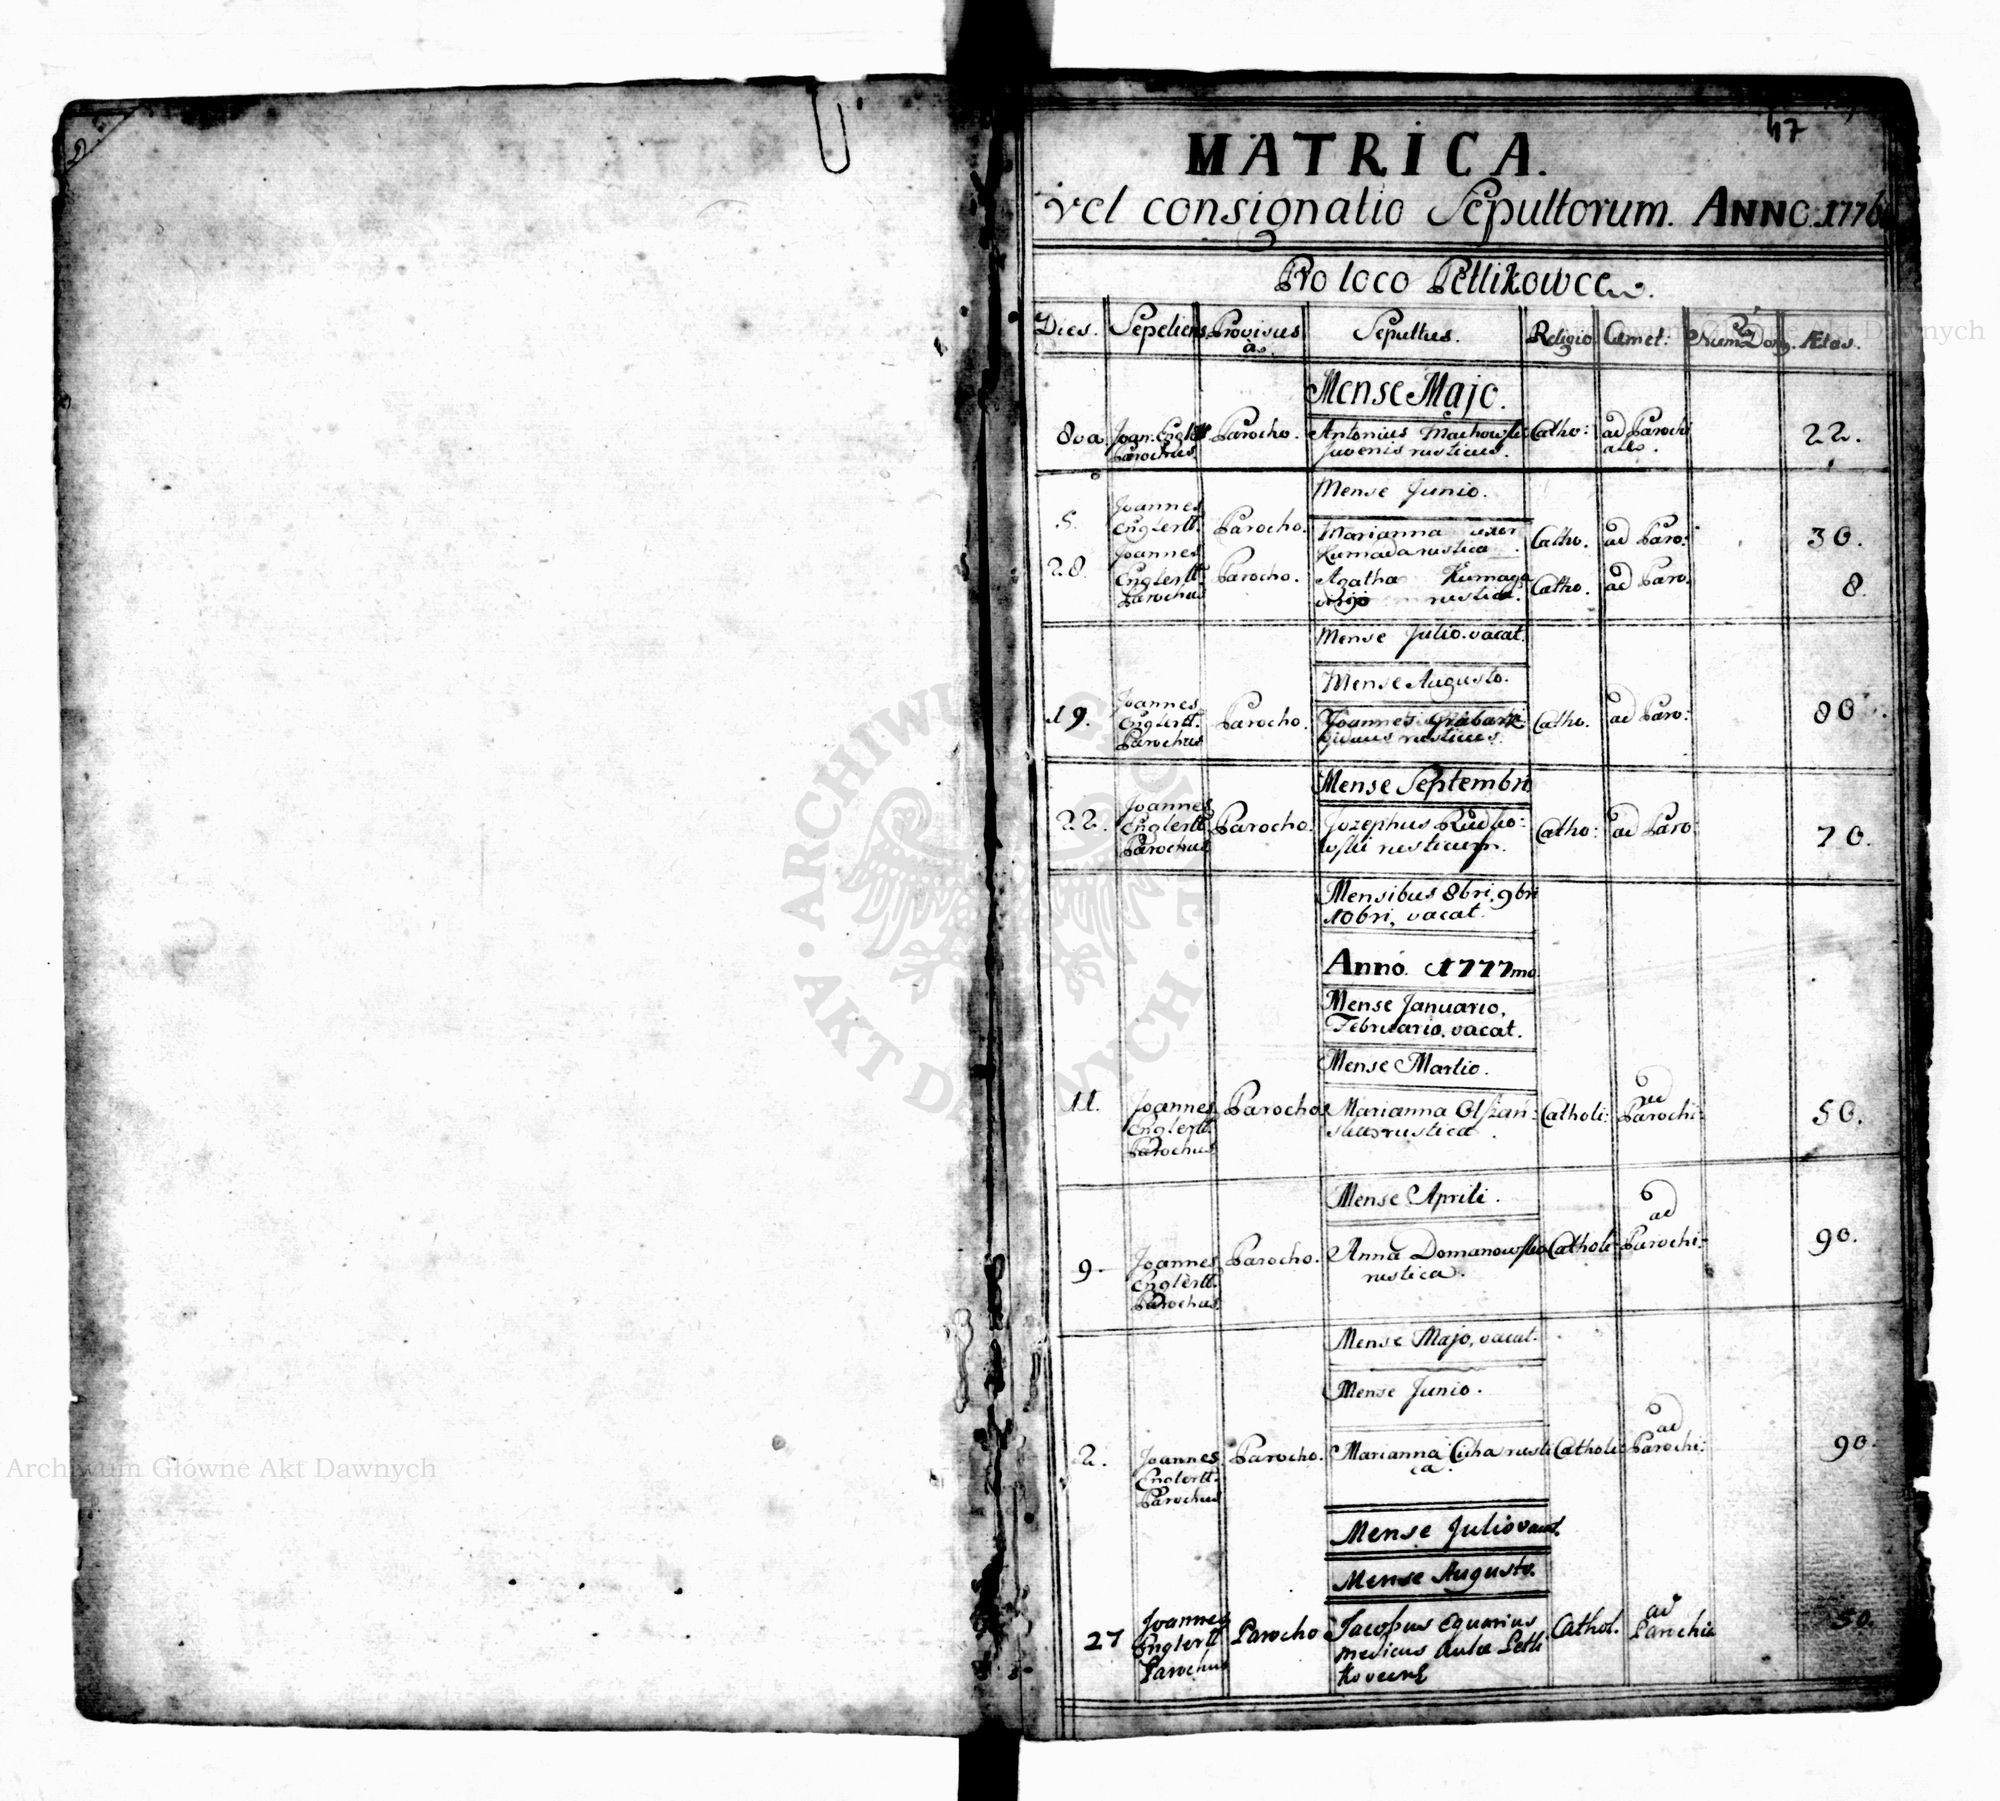 47
MATRICA.
vel consignatio Sepultorum. ANNO. 1776
Pro loco Petlikowce.
Dies. Sepeliens Provisus à. Sepultus. Religio Cimet: Num Dom. Ætas.
Mense Majo.
8va. Joan: Parocho. Antonius Machowski Catho: ad Parochi 22.
Parochus. Juvenis rusticus. ale.
Mense Junio.
5. Joannes Englertt. Parocho. Marianna uxor rustica. Catho. ad Paro: 30.
28. Joannes Englertt Parochus Parocho. Agatha virgo rustica. Catho. ad Paro. 8.
Mense Julio. vacat.
Mense Augusto.
19. Joannes Englertt. Parochus Parocho. Joannes rusticus. Catho. ad Paro: 80.
Mense Septembri
22. Joannes Englertt Parochus Parocho. Jozephus Catho: ad Paro: 70.
Mensibus 8bri, 9bri
10bri, vacat.
Anno. 1777mo.
Mense Januario,
Februario. vacat.
Mense Martio.
11. Joannes Englertt. Parochus Parocho. Marianna Olszań- rustica. Catholi: ad Parochi: 50.
Mense Aprili.
9. Joannes Englertt. Parochus. Parocho. Anna Domanowska rustica. Catholi- ad Parochi: 90.
Mense Majo, vacat.
Mense Junio.
2. Joannes Englertt. Parochus Parocho. Marianna Cicha rusti ca. Catholi: ad Parochi: 90.
Mense Julio vacat.
Mense Augusto.
27 Joannes Englertt Parochus Parocho Jacobus equarius Cathol. ad Parochia 50.
medicus aulæ Petli
kovcens
Archiwum Główne Akt Dawnych
Archiwum Główne Akt Dawnych
ARCHIWUM GŁÓWNE · AKT DAWNYCH ·